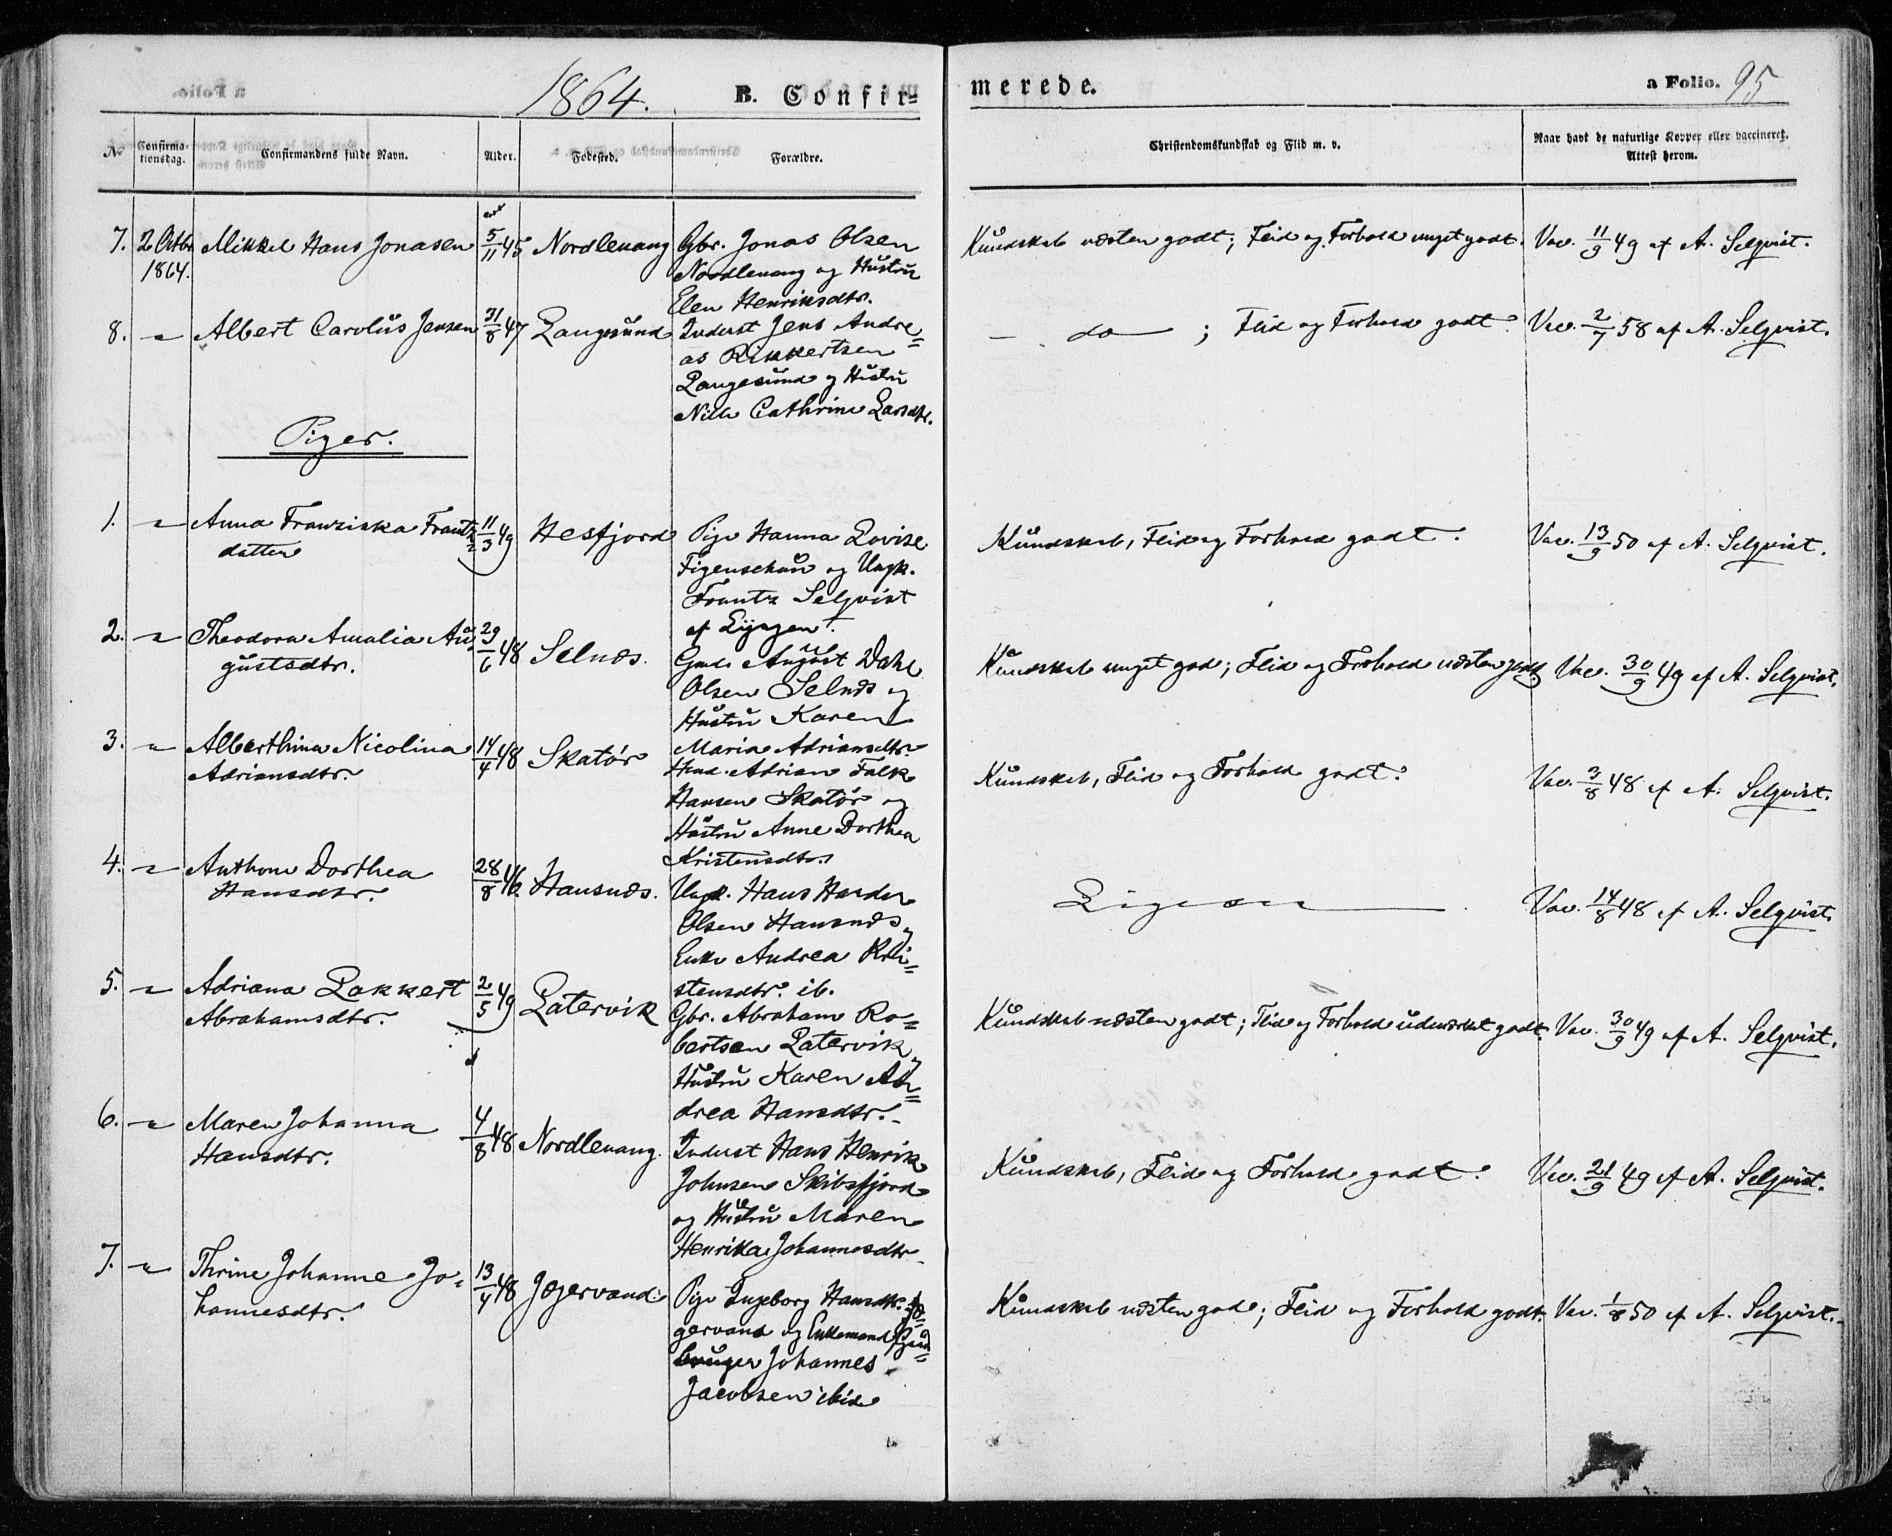 1864. B. Confir=
merede. a Folio. 95
№ Confirma-tionsdag. Confirmandens fulde Navn. Alder. Fødested. Forældre. Christendomskundskab og Flid m. v. Naar havt de naturlige Kopper eller vaccineret. Attest herom.
7. 2 Octbr. 1864. Mikkel Hans Jonasen 5/11 45 Nordlenang Gbr. Jonas Olsen
Nordlenang og Hustru
Elen Henriksdtr.
Kundskab næsten godt; Flid og Forhold meget godt. Vac. 11/9 49 af A. Selqvist.
8. " Albert Carolus Jensen 31/8 47 Langesund Inderst Jens Andre=
as Rikkertsen
Langesund og Hustru
Nille Cathrine Larsdtr.
— do — ; Flid og Forhold godt. Vac. 2/7 58 af A. Selqvist.
Piger.
1. " Anna Franziska Frantz=
datter 11/3 49 Hesfjord Pige Hanna Lovise
Figenschau og Ungk.
Frantz Selqvist
af Lyngen.
Kundskab, Flid og Forhold godt. Vac. 13/9 50 af A. Selqvist.
2. " Theodora Amalia Au=
gustsdtr. 29/6 48 Selnæs. August Dahl
Olsen Selnæs og
Hustru Karen
Maria Adriansdtr.
Kundskab meget god; Flid og Forhold næsten godt. Vac. 30/9 49 af A. Selqvist.
3. " Alberthina Nicolina
Adriansdtr. 14/4 48 Skatør Adrian Falk
Hansen Skatør og
Hustru Anne Dorthea
Kristensdtr.
Kundskab, Flid og Forhold godt. Vac. 3/8 48 af A. Selqvist.
4. " Anthone Dorthea
Hansdtr. 28/8 46. Hansnæs. Ungk. Hans Harder
Olsen Hansnæs og
Enke Andrea Kri=
stensdtr. ib.
Ligesaa Vac. 14/8 48 af A. Selqvist.
5. " Adriana Lakkert
Abrahamsdtr. 2/5 49 Latervik Gbr. Abraham Ro=
bertsen Latervik og
Hustru Karen An=
drea Hansdtr.
Kundskab næsten godt; Flid og Forhold udmærket godt. Vac. 30/9 49 af A. Selqvist.
6. " Maren Johanna
Hansdtr. 4/8 48 Nordlenang. Inderst Hans Henrik
Johnsen Skibsfjord
og Hustru Maren
Henrika Johannesdtr.
Kundskab, Flid og Forhold godt. Vac. 21/9 49 af A. Selqvist.
7. " Thrine Johanne Jo=
hannesdtr. 13/4 48 Jægervand. Pige Ingeborg Hansdtr. Jæ=
gervand og Enkemand Gaard=
bruger Johannes
Jacobsen ibid
Kundskab næsten god; Flid og Forhold godt. Vac. 1/8 50 af A. Selqvist.